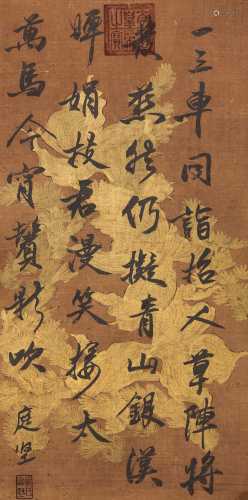 一三車同詣招人草陣將
發燕然仍擬青山銀漢
暉娟枝君漫笑接太
萬馬今宵贊新吹
庭堅